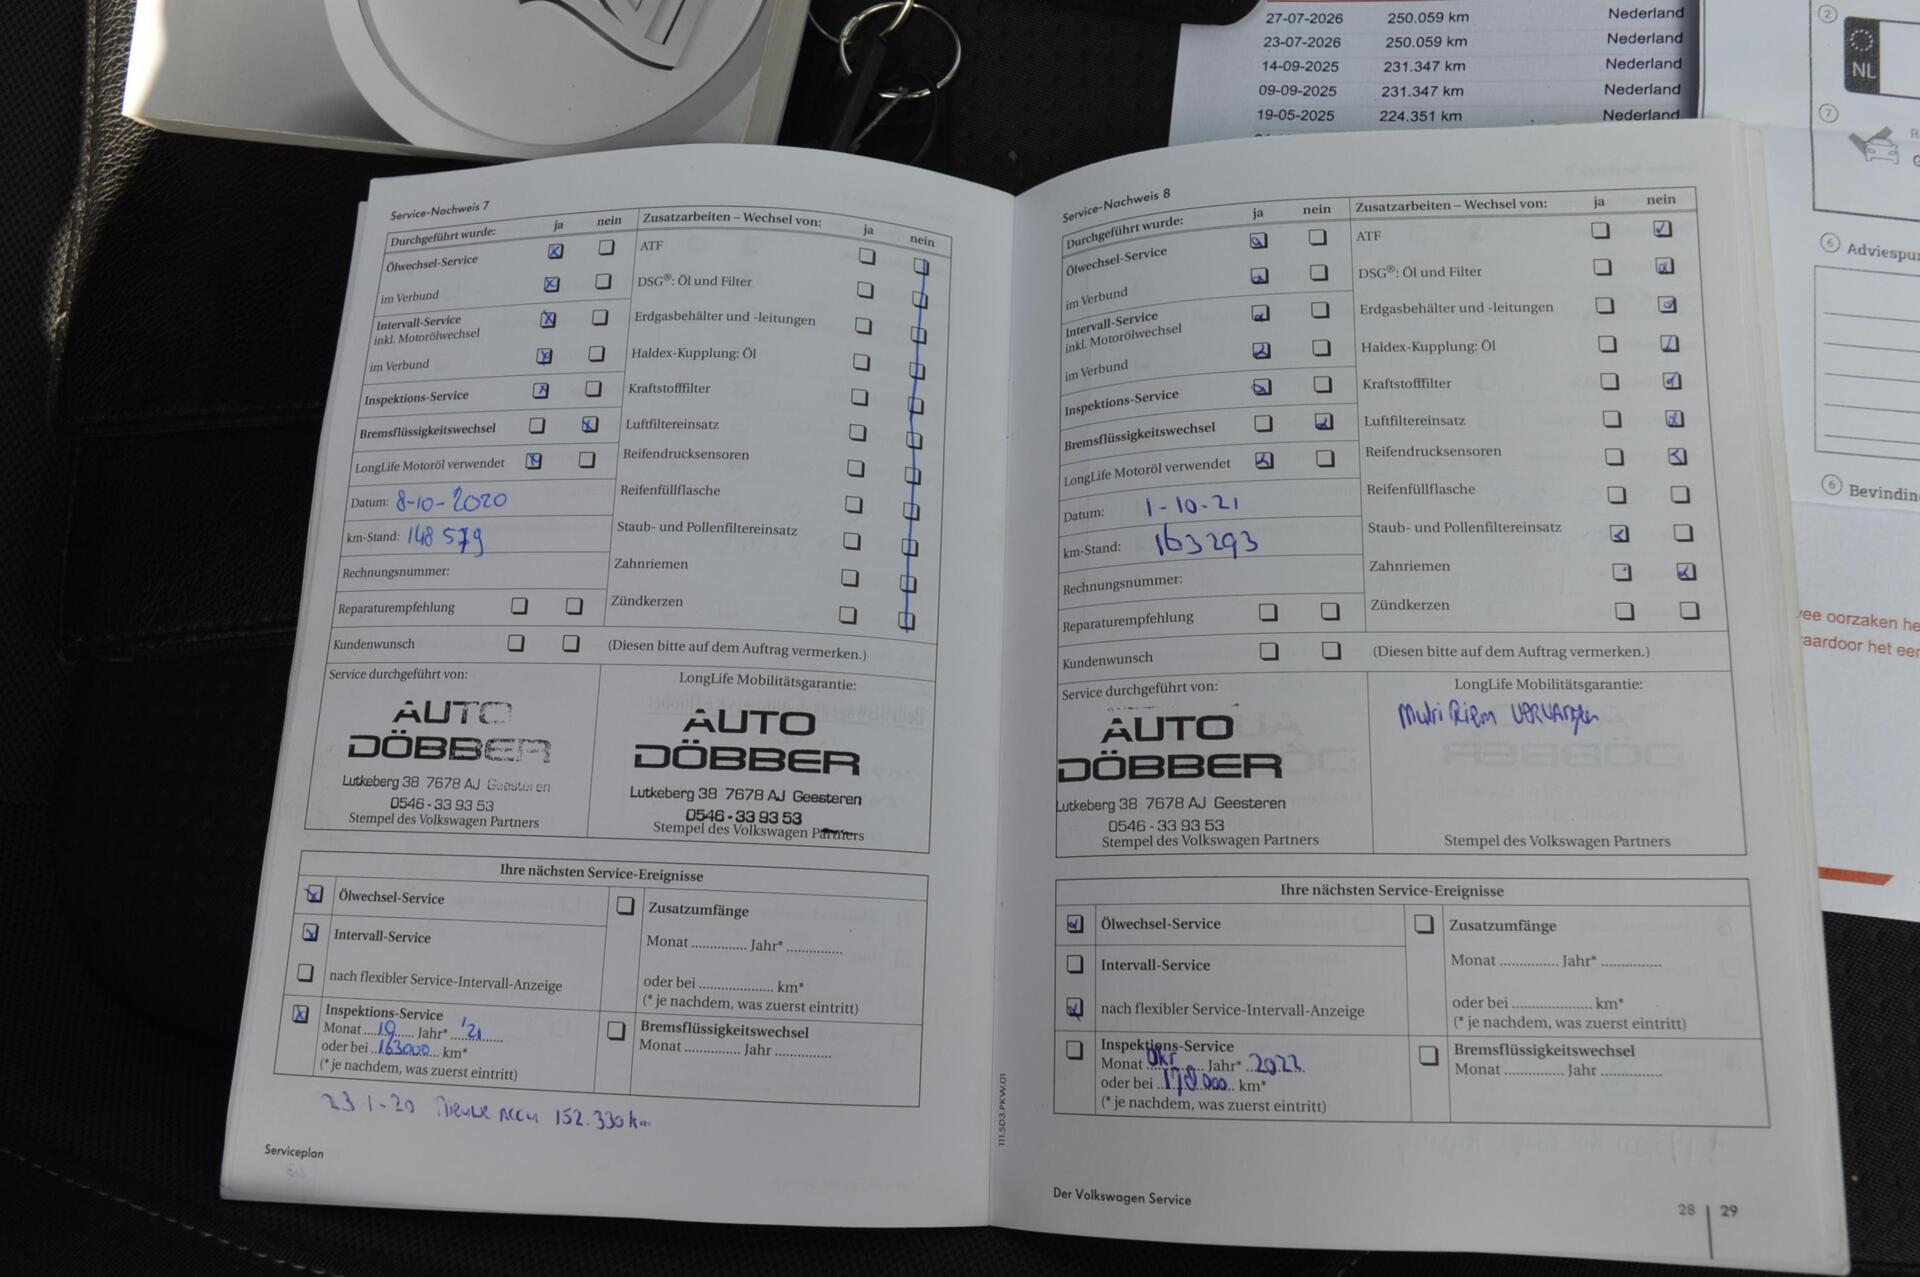 27-07-2026 250.059 km Nederland
23-07-2026 250.059 km Nederland
14-09-2025 231.347 km Nederland
09-09-2025 231.347 km Nederland
19-05-2025 224.351 km Nederland
2
NL
7
6 Adviespu
6 Bevindin
vee oorzaken he
aardoor het eer
Service-Nachweis 7
Durchgeführt wurde: ja nein
Zusatzarbeiten – Wechsel von: ja nein
Ölwechsel-Service
im Verbund
Intervall-Service
inkl. Motorölwechsel
im Verbund
Inspektions-Service
Bremsflüssigkeitswechsel
LongLife Motoröl verwendet
Datum: 8-10-2020
km-Stand: 148 579
Rechnungsnummer:
Reparaturempfehlung
Kundenwunsch
ATF
DSG®: Öl und Filter
Erdgasbehälter und -leitungen
Haldex-Kupplung: Öl
Kraftstofffilter
Luftfiltereinsatz
Reifendrucksensoren
Reifenfüllflasche
Staub- und Pollenfiltereinsatz
Zahnriemen
Zündkerzen
(Diesen bitte auf dem Auftrag vermerken.)
Service durchgeführt von:
AUTO
DÖBBER
Lutkeberg 38 7678 AJ Geesteren
0546 - 33 93 53
Stempel des Volkswagen Partners
LongLife Mobilitätsgarantie:
AUTO
DÖBBER
Lutkeberg 38 7678 AJ Geesteren
0546 - 33 93 53
Stempel des Volkswagen Partners
Ihre nächsten Service-Ereignisse
Ölwechsel-Service
Intervall-Service
nach flexibler Service-Intervall-Anzeige
Inspektions-Service
Monat ...10... Jahr* ...'21...
oder bei ..163000.. km*
(* je nachdem, was zuerst eintritt)
Zusatzumfänge
Monat .............. Jahr* ..............
oder bei ................... km*
(* je nachdem, was zuerst eintritt)
Bremsflüssigkeitswechsel
Monat .............. Jahr ..............
Nieuwe accu 152.330 km
Serviceplan
Service-Nachweis 8
Durchgeführt wurde: ja nein
Zusatzarbeiten – Wechsel von: ja nein
Ölwechsel-Service
im Verbund
Intervall-Service
inkl. Motorölwechsel
im Verbund
Inspektions-Service
Bremsflüssigkeitswechsel
LongLife Motoröl verwendet
Datum: 1-10-21
km-Stand: 163293
Rechnungsnummer:
Reparaturempfehlung
Kundenwunsch
ATF
DSG®: Öl und Filter
Erdgasbehälter und -leitungen
Haldex-Kupplung: Öl
Kraftstofffilter
Luftfiltereinsatz
Reifendrucksensoren
Reifenfüllflasche
Staub- und Pollenfiltereinsatz
Zahnriemen
Zündkerzen
(Diesen bitte auf dem Auftrag vermerken.)
Service durchgeführt von:
AUTO
DÖBBER
Lutkeberg 38 7678 AJ Geesteren
0546 - 33 93 53
Stempel des Volkswagen Partners
LongLife Mobilitätsgarantie:
Multi Riem vervangen
Stempel des Volkswagen Partners
Ihre nächsten Service-Ereignisse
Ölwechsel-Service
Intervall-Service
nach flexibler Service-Intervall-Anzeige
Inspektions-Service
Monat Okt Jahr* ..2022..
oder bei ..178.000.. km*
(* je nachdem, was zuerst eintritt)
Zusatzumfänge
Monat .............. Jahr* ..............
oder bei ................... km*
(* je nachdem, was zuerst eintritt)
Bremsflüssigkeitswechsel
Monat .............. Jahr ..............
111.5D3.PKW.01
Der Volkswagen Service
28 | 29